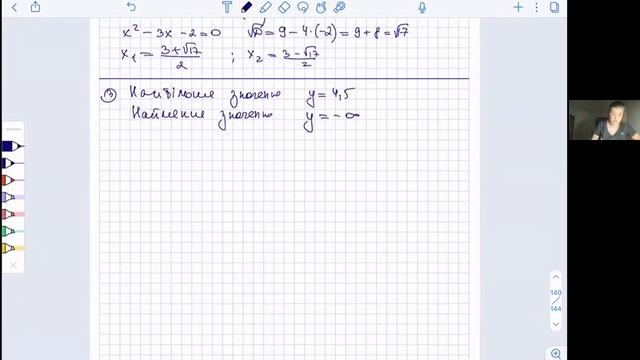 x² - 3x - 2 = 0 √D = 9 - 4·(-2) = 9 + 8 = √17
x₁ = (3+√17)/2 ; x₂ = (3-√17)/2
③ Найбільше значення y = 4,5
Найменше значення y = -∞
140
144